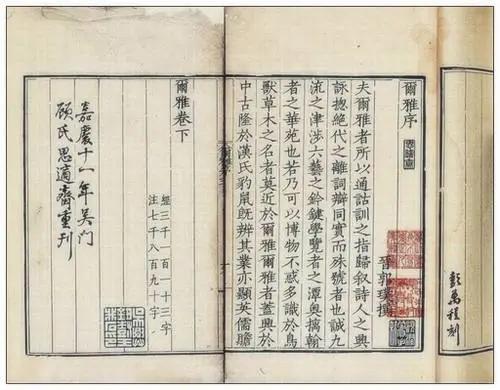 爾雅序
晉郭璞撰
夫爾雅者所以通詁訓之指歸叙詩人之興
詠揔絶代之離詞辯同實而殊號者也誠九
流之津涉六藝之鈐鍵學覽者之潭奥摛翰
者之華苑也若乃可以博物不惑多識於鳥
獸草木之名者莫近於爾雅爾雅者蓋興於
中古隆於漢氏豹鼠既辨其業亦顯英儒贍
爾雅卷下
經三千一百一十三字
注七千八百九十字
嘉慶十一年吴门
顧氏思適齋重刊